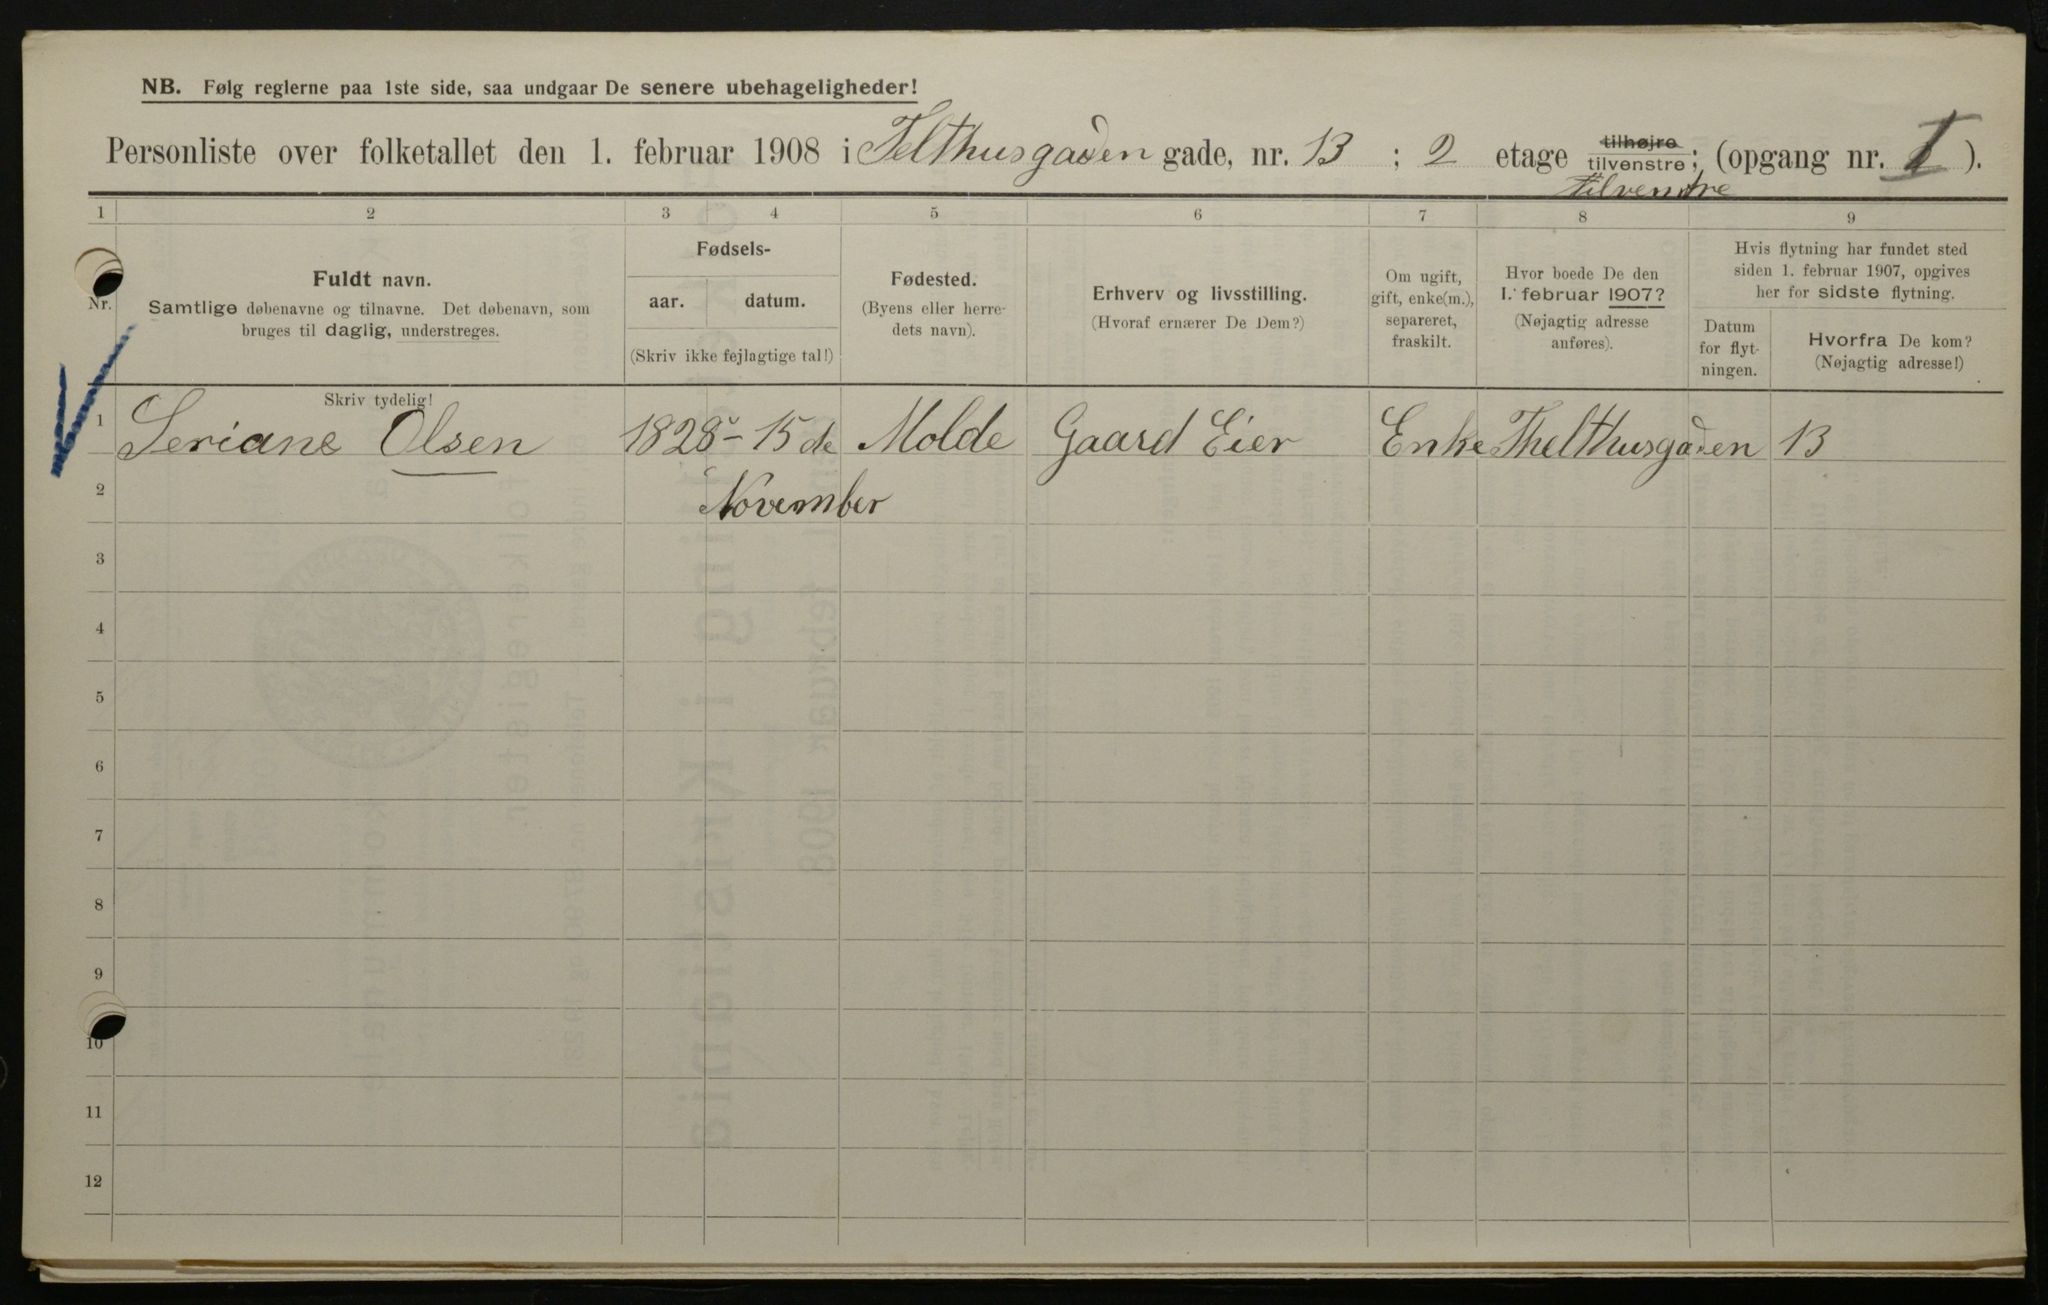 NB. Følg reglerne paa 1ste side, saa undgaar De senere ubehageligheder!
Personliste over folketallet den 1. februar 1908 i Telthusgaden gade, nr. 13 ; 2 etage tilhøjre tilvenstre; (opgang nr. I ).
tilvenstre
1 2 3 4 5 6 7 8 9
Nr.
Fuldt navn.
Samtlige døbenavne og tilnavne. Det døbenavn, som
bruges til daglig, understreges.
Skriv tydelig!
Fødsels-
aar. datum.
(Skriv ikke fejlagtige tal!)
Fødested.
(Byens eller herre-
dets navn).
Erhverv og livsstilling.
(Hvoraf ernærer De Dem?)
Om ugift,
gift, enke(m.),
separeret,
fraskilt.
Hvor boede De den
1. februar 1907?
(Nøjagtig adresse
anføres).
Hvis flytning har fundet sted
siden 1. februar 1907, opgives
her for sidste flytning.
Datum
for flyt-
ningen.
Hvorfra De kom?
(Nøjagtig adresse!)
1 Seriane Olsen 1828 – 15 de Molde Gaard Eier Enke Thelthusgaden 13
2 November
3
4
5
6
7
8
9
10
11
12